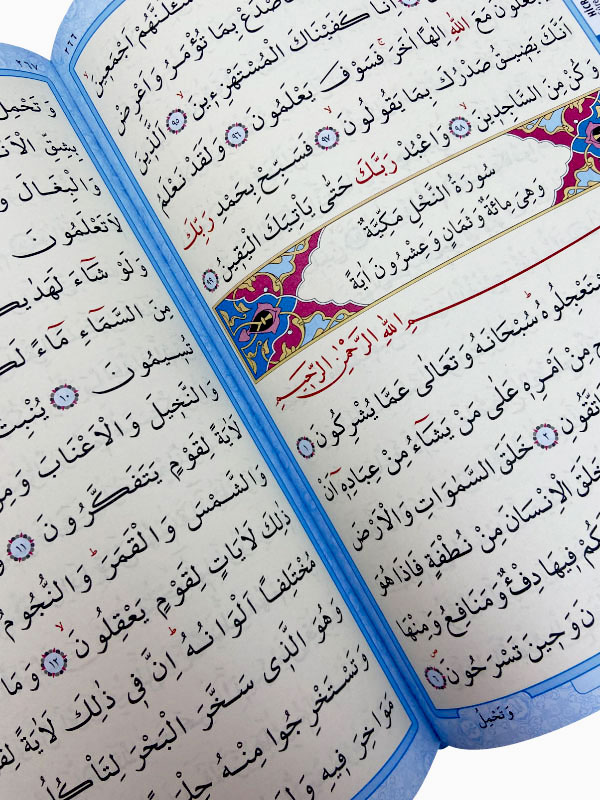 ٢٦٦
اَجْمَع۪ينَۙ
فَاصْدَعْ بِمَا تُؤْمَرُ وَاَعْرِضْ
اِنَّا كَفَيْنَاكَ الْمُسْتَهْزِء۪ينَۙ ﴿٩٥﴾ اَلَّذ۪ينَ
يَجْعَلُونَ مَعَ اللّٰهِ اِلٰهًا اٰخَرَۚ فَسَوْفَ يَعْلَمُونَ ﴿٩٦﴾ وَلَقَدْ نَعْلَمُ
اَنَّكَ يَض۪يقُ صَدْرُكَ بِمَا يَقُولُونَۙ ﴿٩٧﴾ فَسَبِّحْ بِحَمْدِ رَبِّكَ
وَكُنْ مِنَ السَّاجِد۪ينَۙ ﴿٩٨﴾ وَاعْبُدْ رَبَّكَ حَتّٰى يَأْتِيَكَ الْيَق۪ينُ ﴿٩٩﴾
سُورَةُ النَّحْلِ مَكِّيَّةٌ
وَهِيَ مِائَةٌ وَثَمَانٍ وَعِشْرُونَ اٰيَةً
اللّٰهِ الرَّحْمٰنِ الرَّح۪يمِ
تَسْتَعْجِلُوهُۜ سُبْحَانَهُ وَتَعَالٰى عَمَّا يُشْرِكُونَ ﴿١﴾
مِنْ اَمْرِه۪ عَلٰى مَنْ يَشَٓاءُ مِنْ عِبَادِه۪ٓ اَنْ
فَاتَّقُونِ ﴿٢﴾ خَلَقَ السَّمٰوَاتِ وَالْاَرْضَ
خَلَقَ الْاِنْسَانَ مِنْ نُطْفَةٍ فَاِذَا هُوَ
لَكُمْ ف۪يهَا دِفْءٌ وَمَنَافِعُ وَمِنْهَا
وَح۪ينَ تَسْرَحُونَۖ ﴿٦﴾
وَتَحْمِلُ
٢٦٧
وَتَحْمِلُ
بِشِقِّ
وَالْبِغَالَ
لَا تَعْلَمُونَ
وَلَوْ شَٓاءَ
مِنَ السَّمَٓاءِ مَٓاءً
تُس۪يمُونَ ﴿١٠﴾ يُنْبِتُ
وَالنَّخ۪يلَ وَالْاَعْنَابَ وَمِنْ
لَاٰيَةً لِقَوْمٍ يَتَفَكَّرُونَ ﴿١١﴾
وَالشَّمْسَ وَالْقَمَرَۜ وَالنُّجُومُ
ذٰلِكَ لَاٰيَاتٍ لِقَوْمٍ يَعْقِلُونَۙ ﴿١٢﴾ وَمَا
مُخْتَلِفًا اَلْوَانُهُۜ اِنَّ ف۪ي ذٰلِكَ لَاٰيَةً
وَهُوَ الَّذ۪ي سَخَّرَ الْبَحْرَ لِتَأْكُلُوا
وَتَسْتَخْرِجُوا مِنْهُ حِلْيَةً
مَوَاخِرَ ف۪يهِ